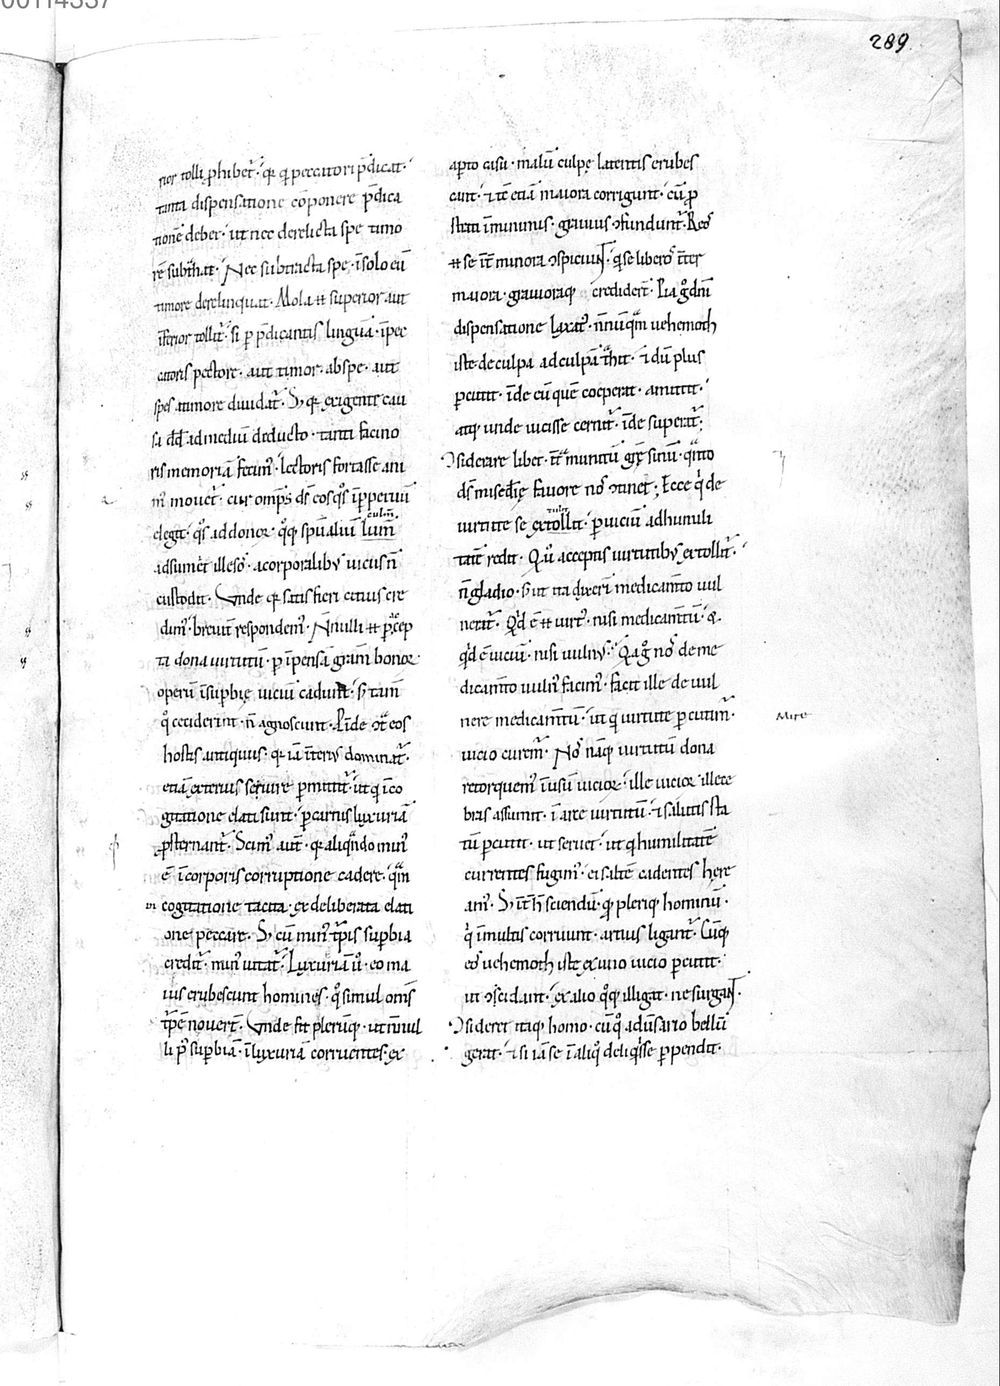 289
rior tolli ꝓhibet᷑· q̇ꝛ q̇ peccatori p̄dicat·
tanta dispensatione cōponere p̄dica
tionē debet· ut nec derelicta spe timo
rē subt̄hat· Nec subtracta spe· ī solo eū
timore derelinquat· Mola ⁊ superior aut
īferior tollit᷑· si ꝑ p̄dicantis linguā· ī pec
catoris pectore· aut timor· ab spe· aut
spes a timore diuidat᷑· S; q̇ꝛ exigente cau
sa dd̄ ad mediū deducto· tanti facino
ris memoriā fecim᷒· lectoris fortasse ani
m᷒ mouet᷑· cur omp̄s ds̄ eos q̊s ī ꝑpetuū
elegit· q̊s ad donoꝝ q̊q; sp̄ualiū lumē
culm̄
adsumet illesos· a corporalib; uiciis n̄
custodit· Vnde q̇ꝛ satisfieri citius cre
dim᷒· breuit̄ respondem᷒· Nn̄ulli ⁊ ꝑcep
ta dona uirtutū· ꝑ īpensā gr̄am bonoꝝ
operū ī supbię uiciū cadunt· s; tam̄
q̊ ceciderint· n̄ agnoscunt· P̄īde ɔt̄ eos
hostis antiquus· q̇ꝛ iā īteri᷒ dominat᷑·
etiā exterius seuire ꝑmittit᷑· ut q̇ ī co
gitatione elati sunt· ꝑ carnis luxuriā
ꝓsternant᷑· Scim᷒ aut̄· q̇ꝛ aliqn̄do min᷒
ē ī corporis corruptione cadere· q̇m
cogitatione tacita· ex deliberata elati
one peccare· S; cū min᷒ t᷑pis supbia
credit᷑· min᷒ uitat᷑· Luxuriā ů· eo ma
ius erubescunt homines· q̊ simul om̄s
t᷑pē nouert̄· Vnde fit plerūq;· ut nn̄ul
li p᷒ supbiā· ī luxuriā corruentes· ex
apto casu· malū culpę latentis erubes
cant· ⁊ tc̄ etiā maiora corrigunt· cū ꝓ
strati ī minimis· grauius ɔfundunt᷑· Reos
⁊ se īt̄ minora ɔspiciunt· q̇ se liberos īt̄er
maiora· grauioraq; credidert̄· Pia g̊ dn̄i
dispensatione laxat᷒· nn̄ūq̇m uehemoth
iste de culpa ad culpā t̊hit· ⁊ dū plus
percutit· īde eū quē cœperat· amittit·
atq; unde uicisse cernit᷑· īde superat᷑;
Ɔsiderare libet· īt̊ munitū gr̄ę sinū· q̇nto
ds̄ misedię fauore nos ɔtinet; Ecce q̇ de
uirtute se extollit· ꝑ uiciū ad humili
tatē redit· Q̇ ů acceptis uirtutib; extollit᷑·
n̄ gladio· s; ut ita dixerī medicamto uul
nerat᷑· Q̇d ē ⁊ uirt᷒· nisi medicamtū· &
q̇d ē uiciū· nisi uuln᷒· Q̇a g̊ nos de me
dicamto uuln᷒ facim᷒· facit ille de uul
nere medicamtū· ut q̇ uirtute ꝑcutim᷑·
Mire
uicio curem᷑· Nos nāq; uirtutū dona
retorquem᷒ ī usū uicioꝝ· ille uicioꝝ illece
bras assumit· ī arte uirtutū· ⁊ salutis sta
tū ꝑcutit· ut seruet· ut q̇ humilitatē
currentes fugim᷒· ei saltē cadentes here
am᷒· S; īt̄ h̄ sciendū· q̊ꝓ pleriq; hominū·
q̊ ī multis corruunt· artius ligant᷑· Cūq;
eos uehemoth iste ex uno uicio ꝑcutit·
ut ɔscidant· ex alio q̊q; illigat· ne surgant·
Ɔsideret itaq; homo· cū q̊ aduersario bellū
gerat· ⁊ si iā se ī aliq̊ deliq̇sse ꝑpendit·